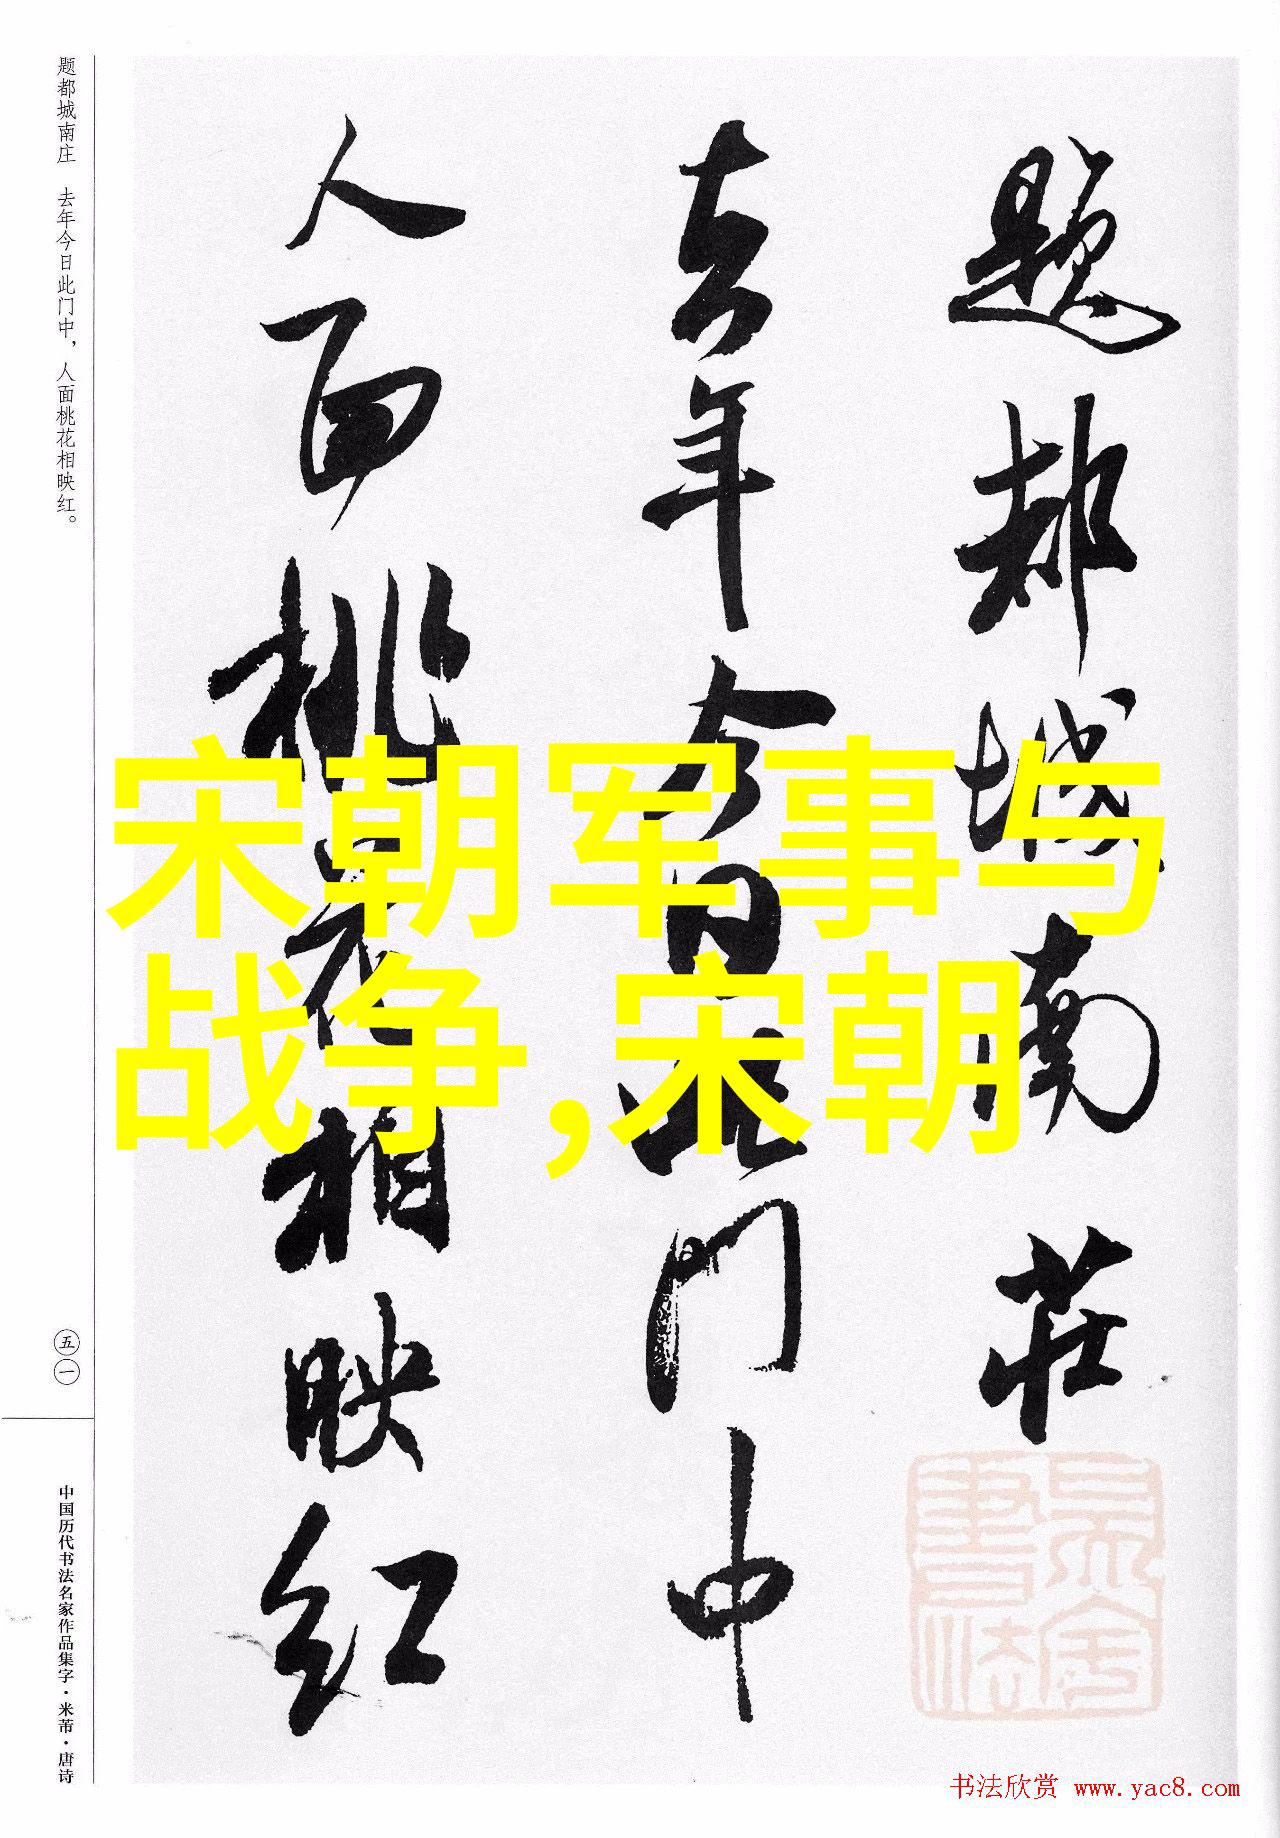 题都城南庄 去年今日此门中，人面桃花相映红。
題都城南莊
去年今日此門中
人面桃花相映红
宋朝军事与
战争,宋朝
五一
中国历代书法名家作品集字·米芾·唐诗
书法欣赏 www.yac8.com